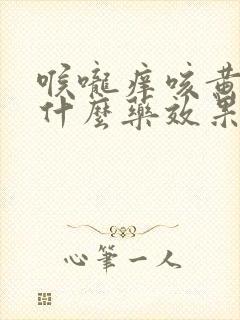 喉嚨痒咳黄
什麼藥效果
心筆一人